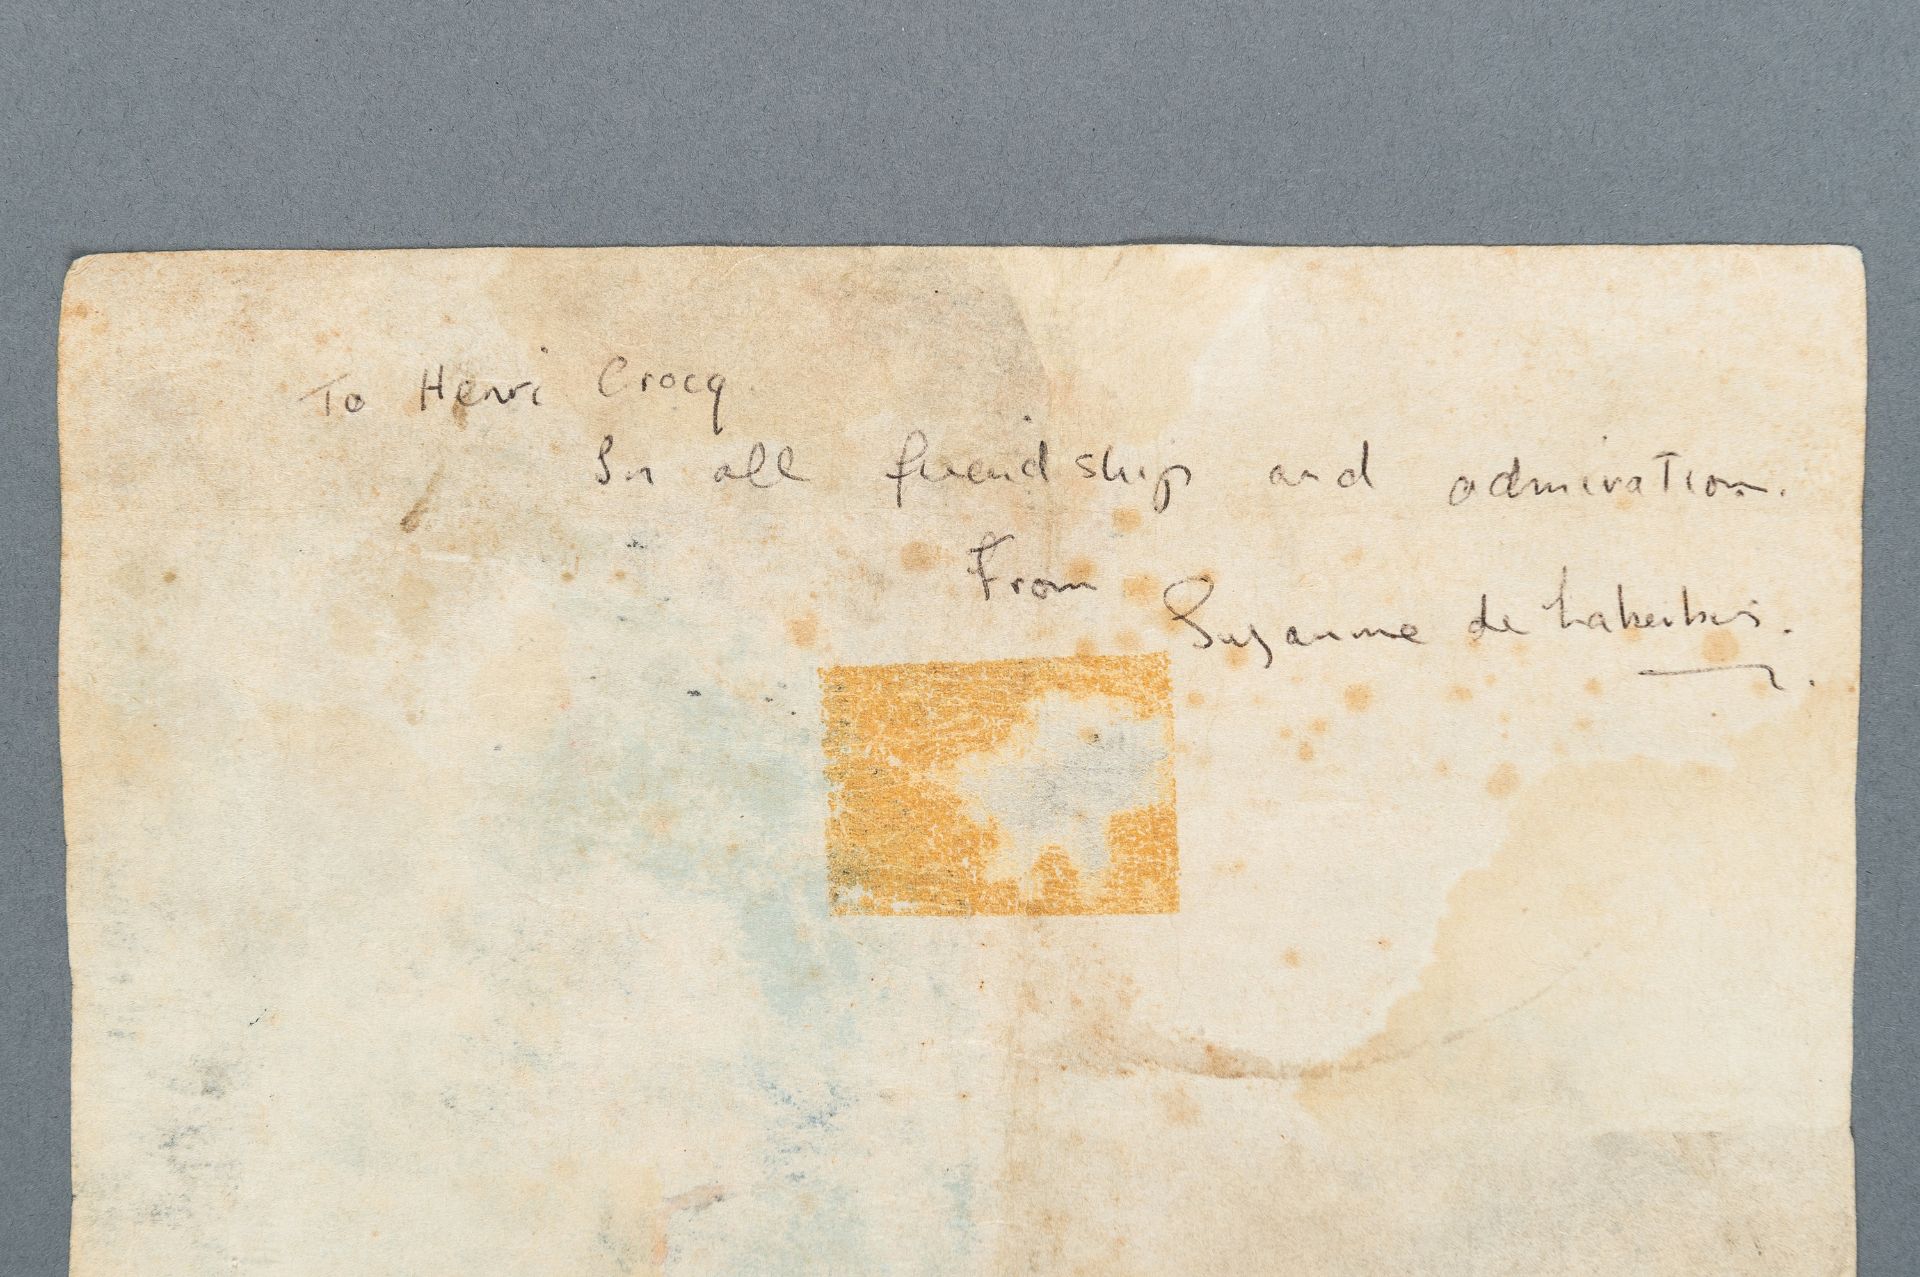 To Henri Crocq.
In all friendship and admiration.
From
Suzanne de